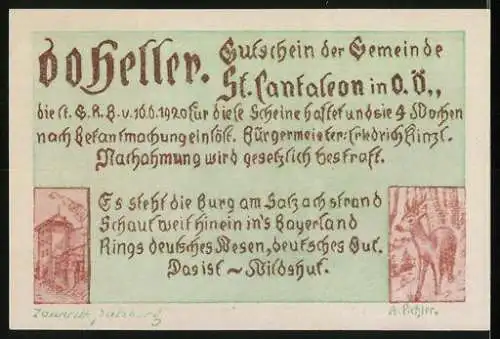 60 Heller. Gutschein der Gemeinde
St. Pantaleon in O.Ö.,,
die lt. G.R.B. v. 16.6.1920 für diese Scheine haftet und sie 4 Wochen
nach Bekantmachung einlöst. Bürgermeister: Friedrich Hinzl.
Nachahmung wird gesetzlich bestraft.
Es steht die Burg am Salzachstrand
Schaut weit hinein in's Bayerland
Rings deutsches Wesen, deutsches Gut.
Das ist ~ Wildshut.
Zaunrith, Salzburg
A. Pichler.